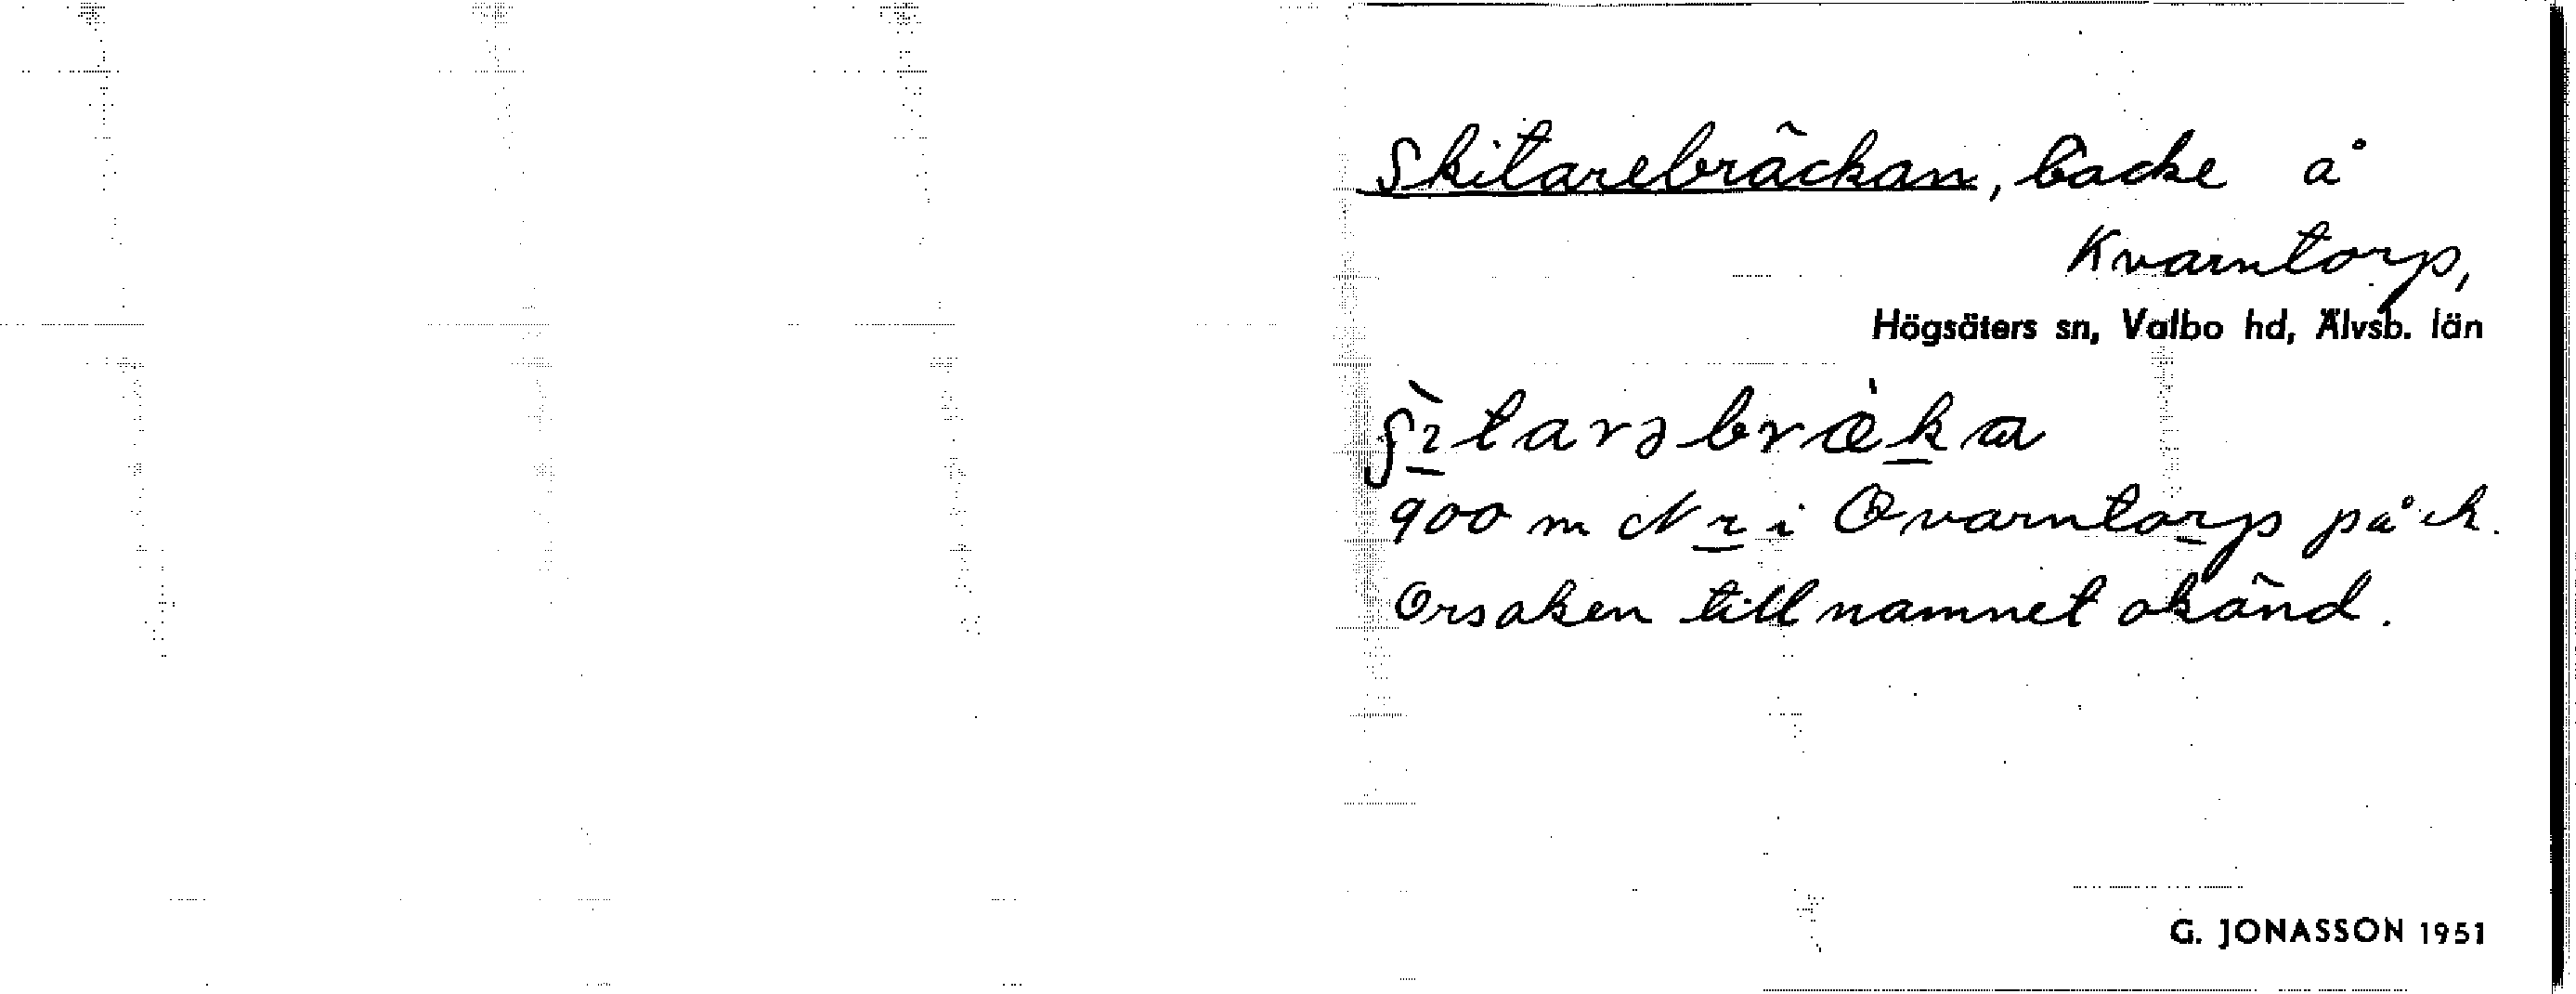 Skitarebräckan, backe å
Kvarntorp,
Högsäters sn, Valbo hd, Älvsb. län
ʃɪ̀tarəbræ̀ka
900 m N r i Qvarntorp på ek.
Orsaken till namnet okänd.
G. JONASSON 1951